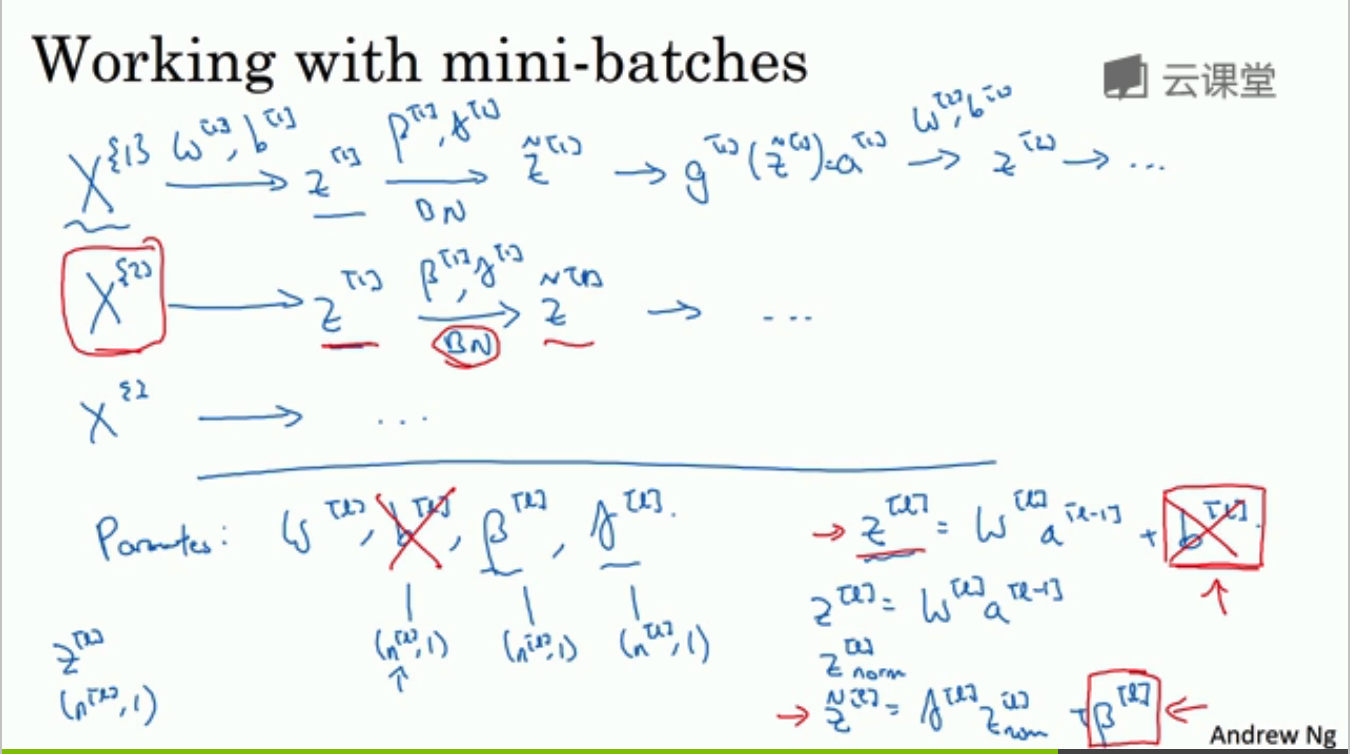 Working with mini-batches
云课堂
X^{1} W^[1], b^[1] → z^[1] β^[1], γ^[1] → BN z̃^[1] → g^[1](z̃^[1]) = a^[1] W^[2], b^[2] → z^[2] → ...
X^{2} → z^[1] β^[1], γ^[1] → BN z̃^[1] → ...
X^{} → ...
Parameters: W^[l], b^[l], β^[l], γ^[l].
(n^[l], 1) (n^[l], 1) (n^[l], 1)
z^[l]
(n^[l], 1)
→ z^[l] = W^[l] a^[l-1] + b^[l]
z^[l] = W^[l] a^[l-1]
z^[l] norm
→ z̃^[l] = γ^[l] z^[l] norm + β^[l] ←
Andrew Ng